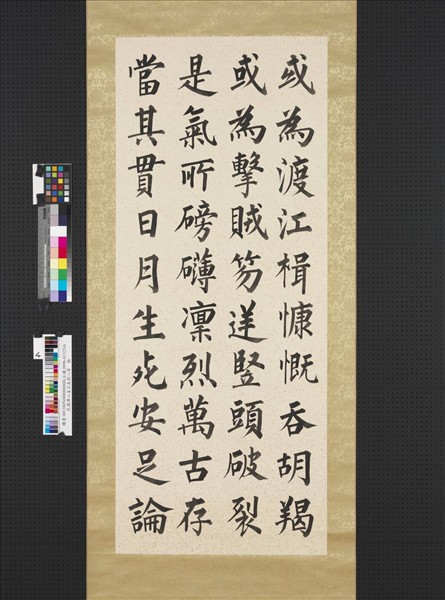 或為渡江楫慷慨吞胡羯
或為擊賊笏逆豎頭破裂
是氣所磅礴凛烈萬古存
當其貫日月生死安足論